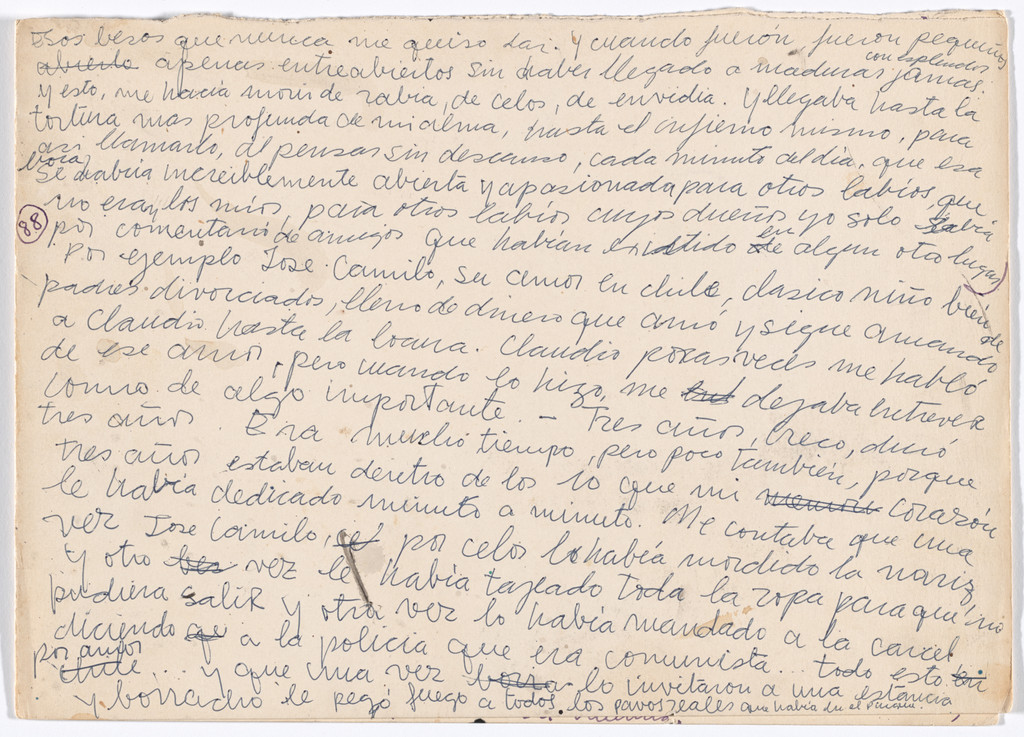 Esos besos que nunca me quiso dar. Y cuando fueron, fueron pequeños
con esplendor
abierto apenas entreabiertos sin haber llegado a maduras jamas.
Y esto, me hacia morir de rabia, de celos, de envidia. Y llegaba hasta la
tortura mas profunda de mi alma, hasta el infierno mismo, para
asi llamarlo, al pensar sin descanso, cada minuto del dia, que esa
boca
se habria increiblemente abierta y apasionada para otros labios, que
no eran los mios, para otros labios cuyos dueños yo solo sabia
88
por comentario de amigos que habian existido en algun otro lugar
Por ejemplo Jose Camilo, su amor en chile, clasico niño bien de
padres divorciados, lleno de dinero que amó y sigue amando
a Claudio hasta la locura. Claudio pocas veces me habló
de ese amor, pero cuando lo hizo, me dejaba entrever
como de algo importante. – Tres años, creco, duró
tres años. Era mucho tiempo, pero poco también, porque
tres años estaban dentro de los lo que mi memoria corazón
le habia dedicado minuto a minuto. Me contaba que una
vez Jose Camilo, por celos lo había mordido la nariz,
Y otro vez le había tajeado toda la ropa para que no
pudiera salir y otra vez lo había mandado a la carcel
diciendo qe a la policia que era comunista... todo esto en
por amor
chile ... y que una vez borra lo invitaron a una estancia
y borracho le pegó fuego a todos los pavos reales que había en el